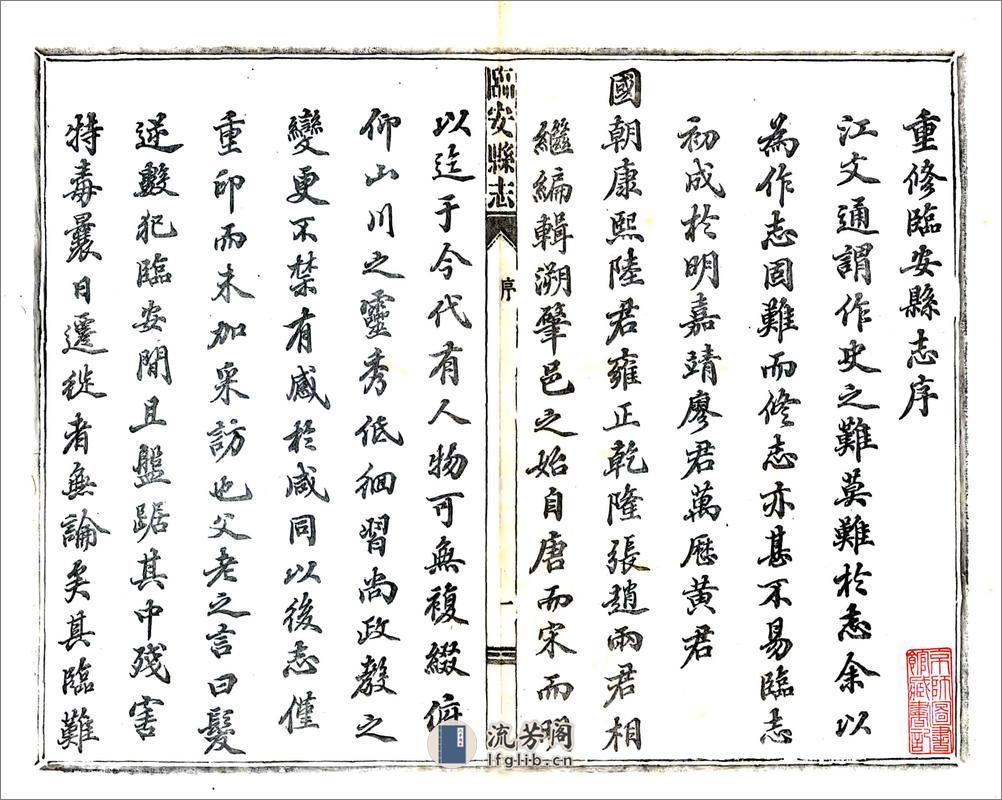 重修臨安縣志序
江文通謂作史之難莫難於志余以
為作志固難而修志亦甚不易臨志
初成於明嘉靖廖君萬歷黃君
國朝康熙陸君雍正乾隆張趙兩君相
繼編輯溯肇邑之始自唐而宋而
臨安縣志
序
一
以迄于今代有人物可無複綴俯
仰山川之靈秀低徊習尚政教之
變更不禁有感於咸同以後志僅
重印而未加采訪也父老之言曰髮
逆數犯臨安間且盤踞其中殘害
特毒曩日遷徙者無論矣其臨難
流芳閣
lfglib.cn